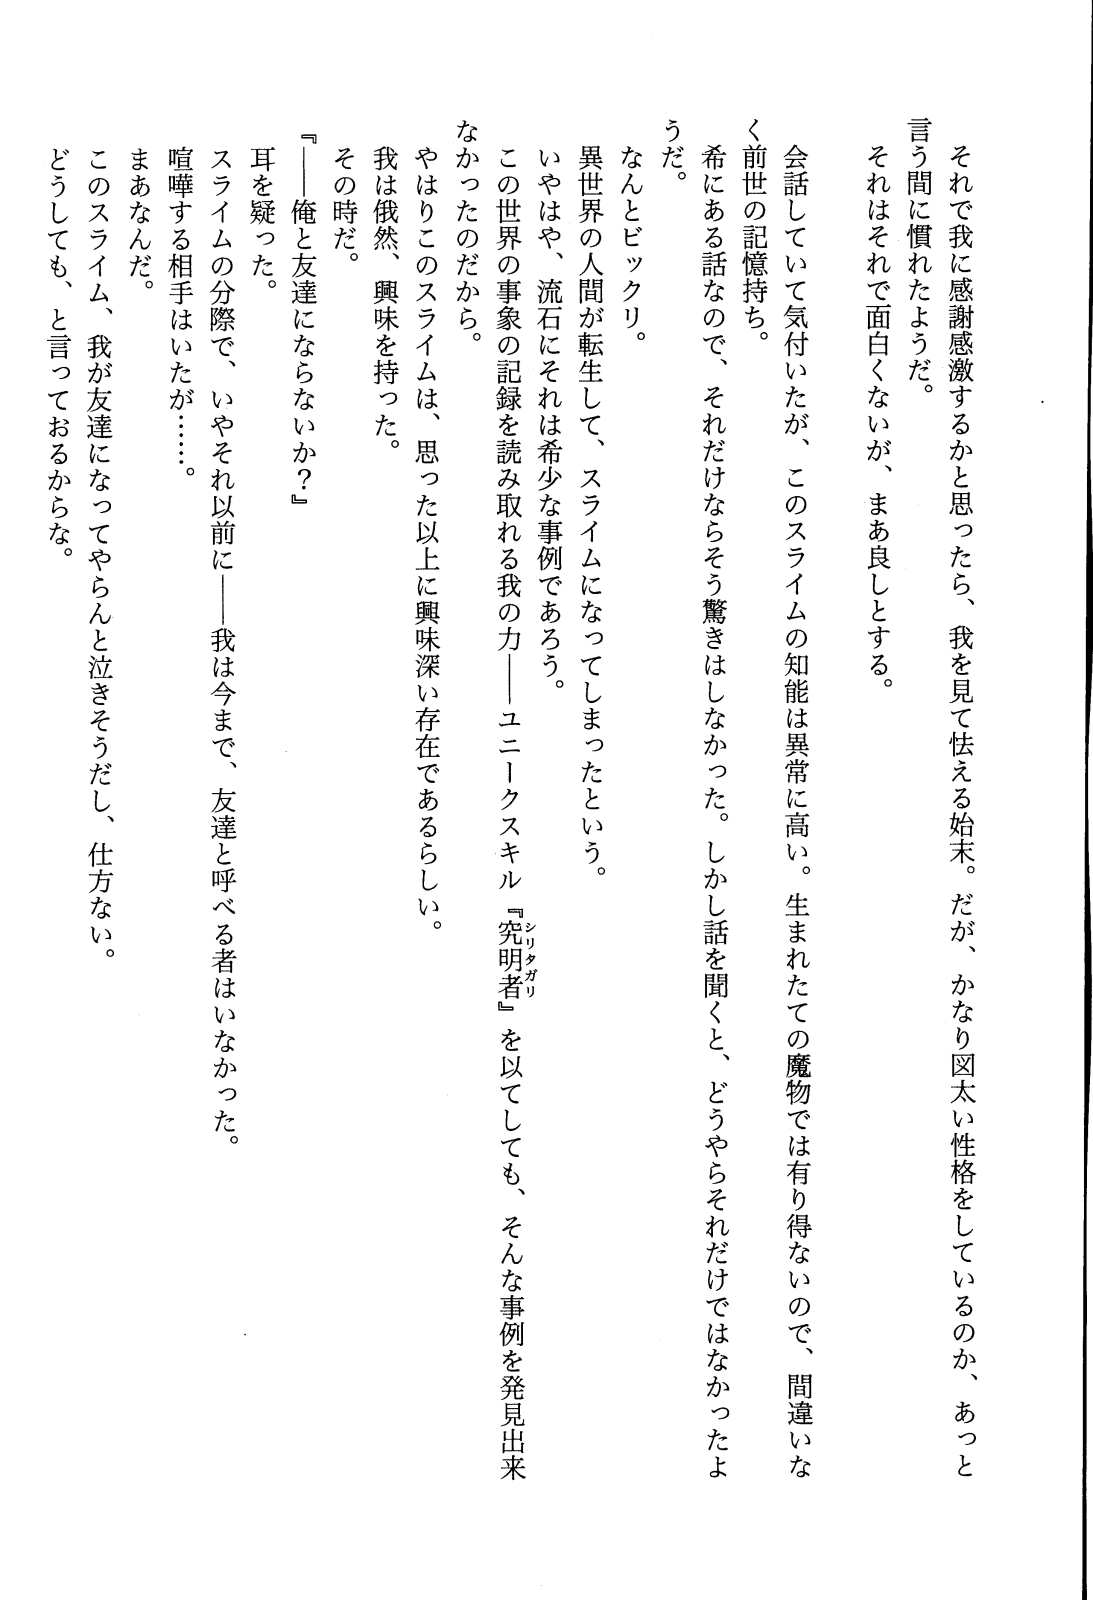 それで我に感謝感激するかと思ったら、我を見て怯える始末。だが、かなり図太い性格をしているのか、あっと
言う間に慣れたようだ。
それはそれで面白くないが、まあ良しとする。
会話していて気付いたが、このスライムの知能は異常に高い。生まれたての魔物では有り得ないので、間違いな
く前世の記憶持ち。
希にある話なので、それだけならそう驚きはしなかった。しかし話を聞くと、どうやらそれだけではなかったよ
うだ。
なんとビックリ。
異世界の人間が転生して、スライムになってしまったという。
いやはや、流石にそれは希少な事例であろう。
この世界の事象の記録を読み取れる我の力――ユニークスキル『究明者』を以てしても、そんな事例を発見出来
シリタガリ
なかったのだから。
やはりこのスライムは、思った以上に興味深い存在であるらしい。
我は俄然、興味を持った。
その時だ。
『――俺と友達にならないか？』
耳を疑った。
スライムの分際で、いやそれ以前に――我は今まで、友達と呼べる者はいなかった。
喧嘩する相手はいたが……。
まあなんだ。
このスライム、我が友達になってやらんと泣きそうだし、仕方ない。
どうしても、と言っておるからな。